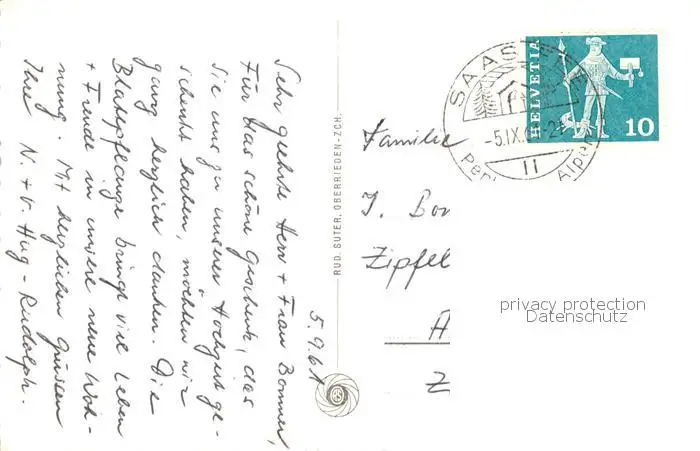 5.9.61
Sehr geehrte Herr + Frau Bommer,
Für das schöne Geschenk, das
Sie uns zu unserer Hochzeit ge-
schenkt haben, möchten wir
ganz herzlich danken. Die
Blattpflanze bringt viel Leben
+ Freude in unsere neue Woh-
nung. Mit herzlichen Grüssen
Ihre N. + V. Hug-Rudolph.
RUD. SUTER, OBERRIEDEN-ZCH.
SAAS
-5.IX.
II
Alpen
HELVETIA
10
Familie
J. Bom
Zipfel
A
Z
privacy protection
Datenschutz